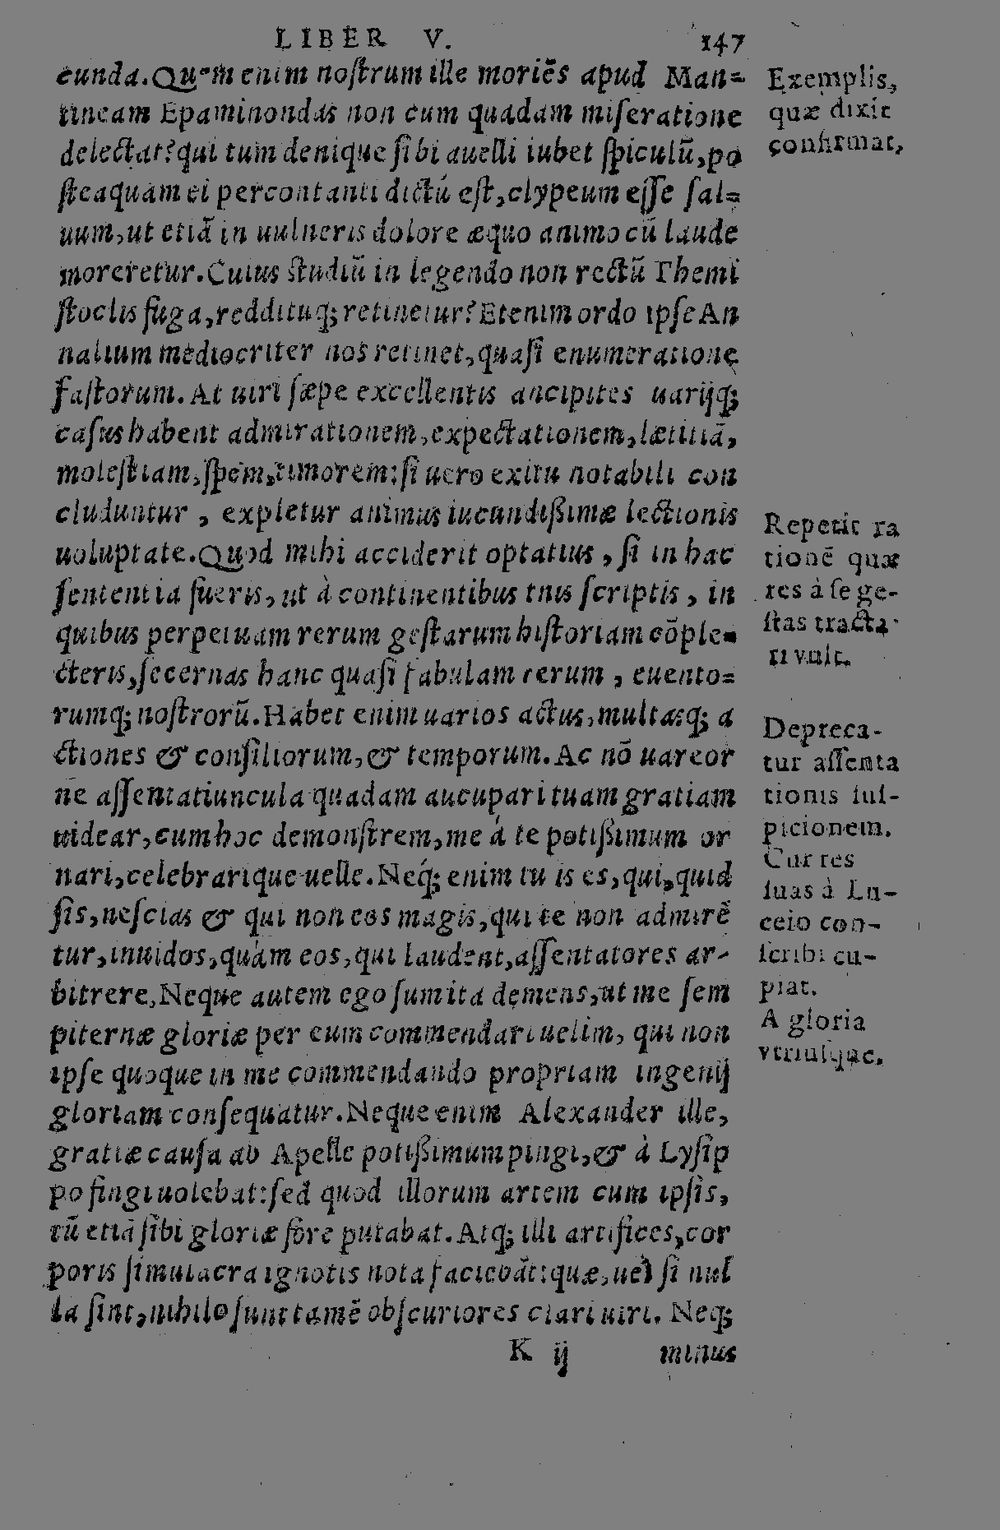 LIBER V. 147
cunda. Quem enim nostrum ille moriẽs apud Man=
tineam Epaminondas non cum quadam miseratione
delectat? qui tum denique sibi auelli iubet spiculũ, po
steaquam ei percontanti dictũ est, clypeum esse sal=
uum, ut etiã in uulneris dolore æquo animo cũ laude
moreretur. Cuius studiũ in legendo non rectũ Themi
stoclis fuga, reddituq; retinetur? Etenim ordo ipse An
nalium mediocriter nos retinet, quasi enumeratione
fastorum. At uiri sæpe excellentis ancipites uarijq;
casus habent admirationem, expectationem, lætitiã,
molestiam, spem, timorem: si uero exitu notabili con
cluduntur, expletur animus iucundißimæ lectionis
uoluptate. Quod mihi acciderit optatius, si in hac
sententia fueris, ut à continentibus tuis scriptis, in
quibus perpetuam rerum gestarum historiam cõple=
cteris, secernas hanc quasi fabulam rerum, euento=
rumq; nostrorũ. Habet enim uarios actus, multasq; a
ctiones & consiliorum, & temporum. Ac nõ uereor
ne assentatiuncula quadam aucupari tuam gratiam
uidear, cum hoc demonstrem, me à te potißimum or
nari, celebrarique uelle. Neq; enim tu is es, qui, quid
sis, nescias & qui non eos magis, qui te non admirẽ
tur, inuidos, quàm eos, qui laudent, assentatores ar-
bitrere, Neque autem ego sum ita demens, ut me sem
piternæ gloriæ per eum commendari uelim, qui non
ipse quoque in me commendando propriam ingenij
gloriam consequatur. Neque enim Alexander ille,
gratiæ causa ab Apelle potißimum pingi, & à Lysip
po fingi uolebat: sed quod illorum artem cum ipsis,
tũ etiã sibi gloriæ fore putabat. Atq; illi artifices, cor
poris simulacra ignotis nota faciebãt: quæ, uel si nul
la sint, nihilo sunt tamẽ obscuriores clari uiri. Neq;
K ij minus
Exemplis,
quæ dixit
confirmat,
Repetit ra
tionẽ quæ
res à se ge-
stas tracta
ri vult.
Depreca-
tur assenta
tionis sus-
picionem.
Cur res
suas à Lu-
ceio con-
scribi cu-
piat.
A gloria
vtriusque.